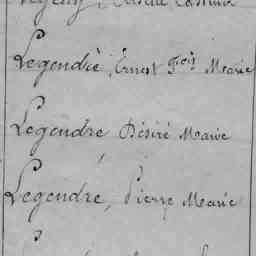 Legendre, Ernest Fois Marie
Legendre Désiré Marie
Legendre, Pierre Marie